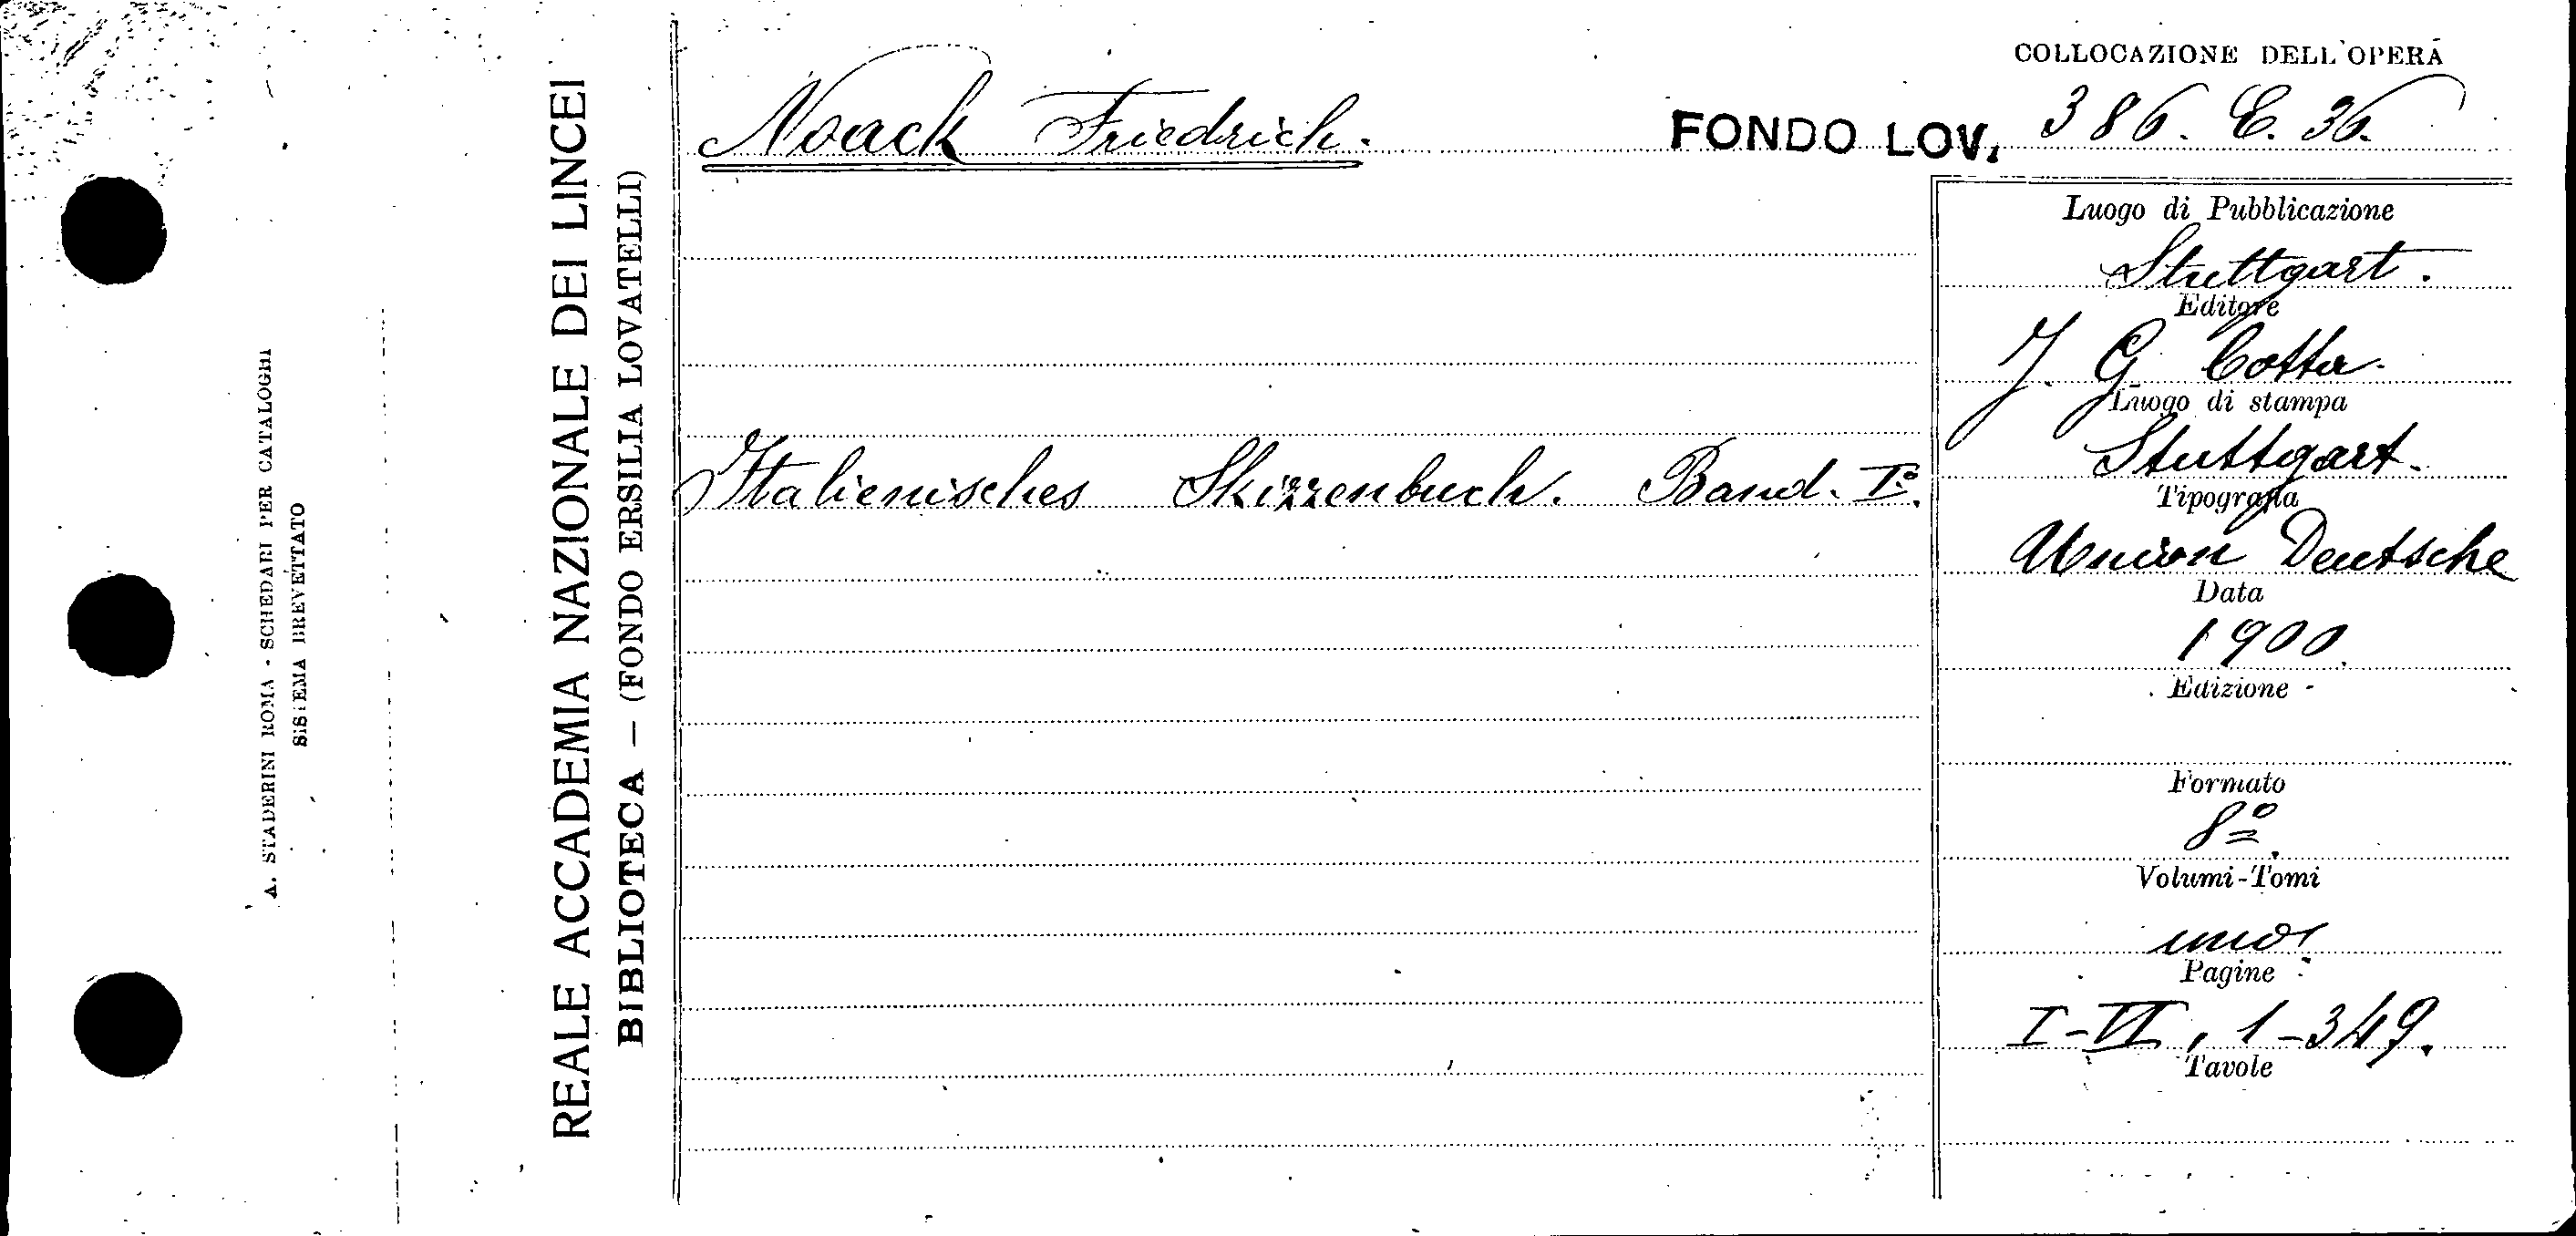 A. STADERINI ROMA - SCHEDARI PER CATALOGHI
SISTEMA BREVETTATO
REALE ACCADEMIA NAZIONALE DEI LINCEI
BIBLIOTECA — (FONDO ERSILIA LOVATELLI)
COLLOCAZIONE DELL'OPERA
Noack Friedrich.
FONDO LOV. 386. E. 36.
Italienisches Skizzenbuch. Band. I°.
Luogo di Pubblicazione
Stuttgart.
Editore
J. G. Cotta.
Luogo di stampa
Stuttgart.
Tipografia
Union Deutsche
Data
1900.
Edizione
Formato
8°.
Volumi-Tomi
uno
Pagine
I-VI, 1-349.
Tavole